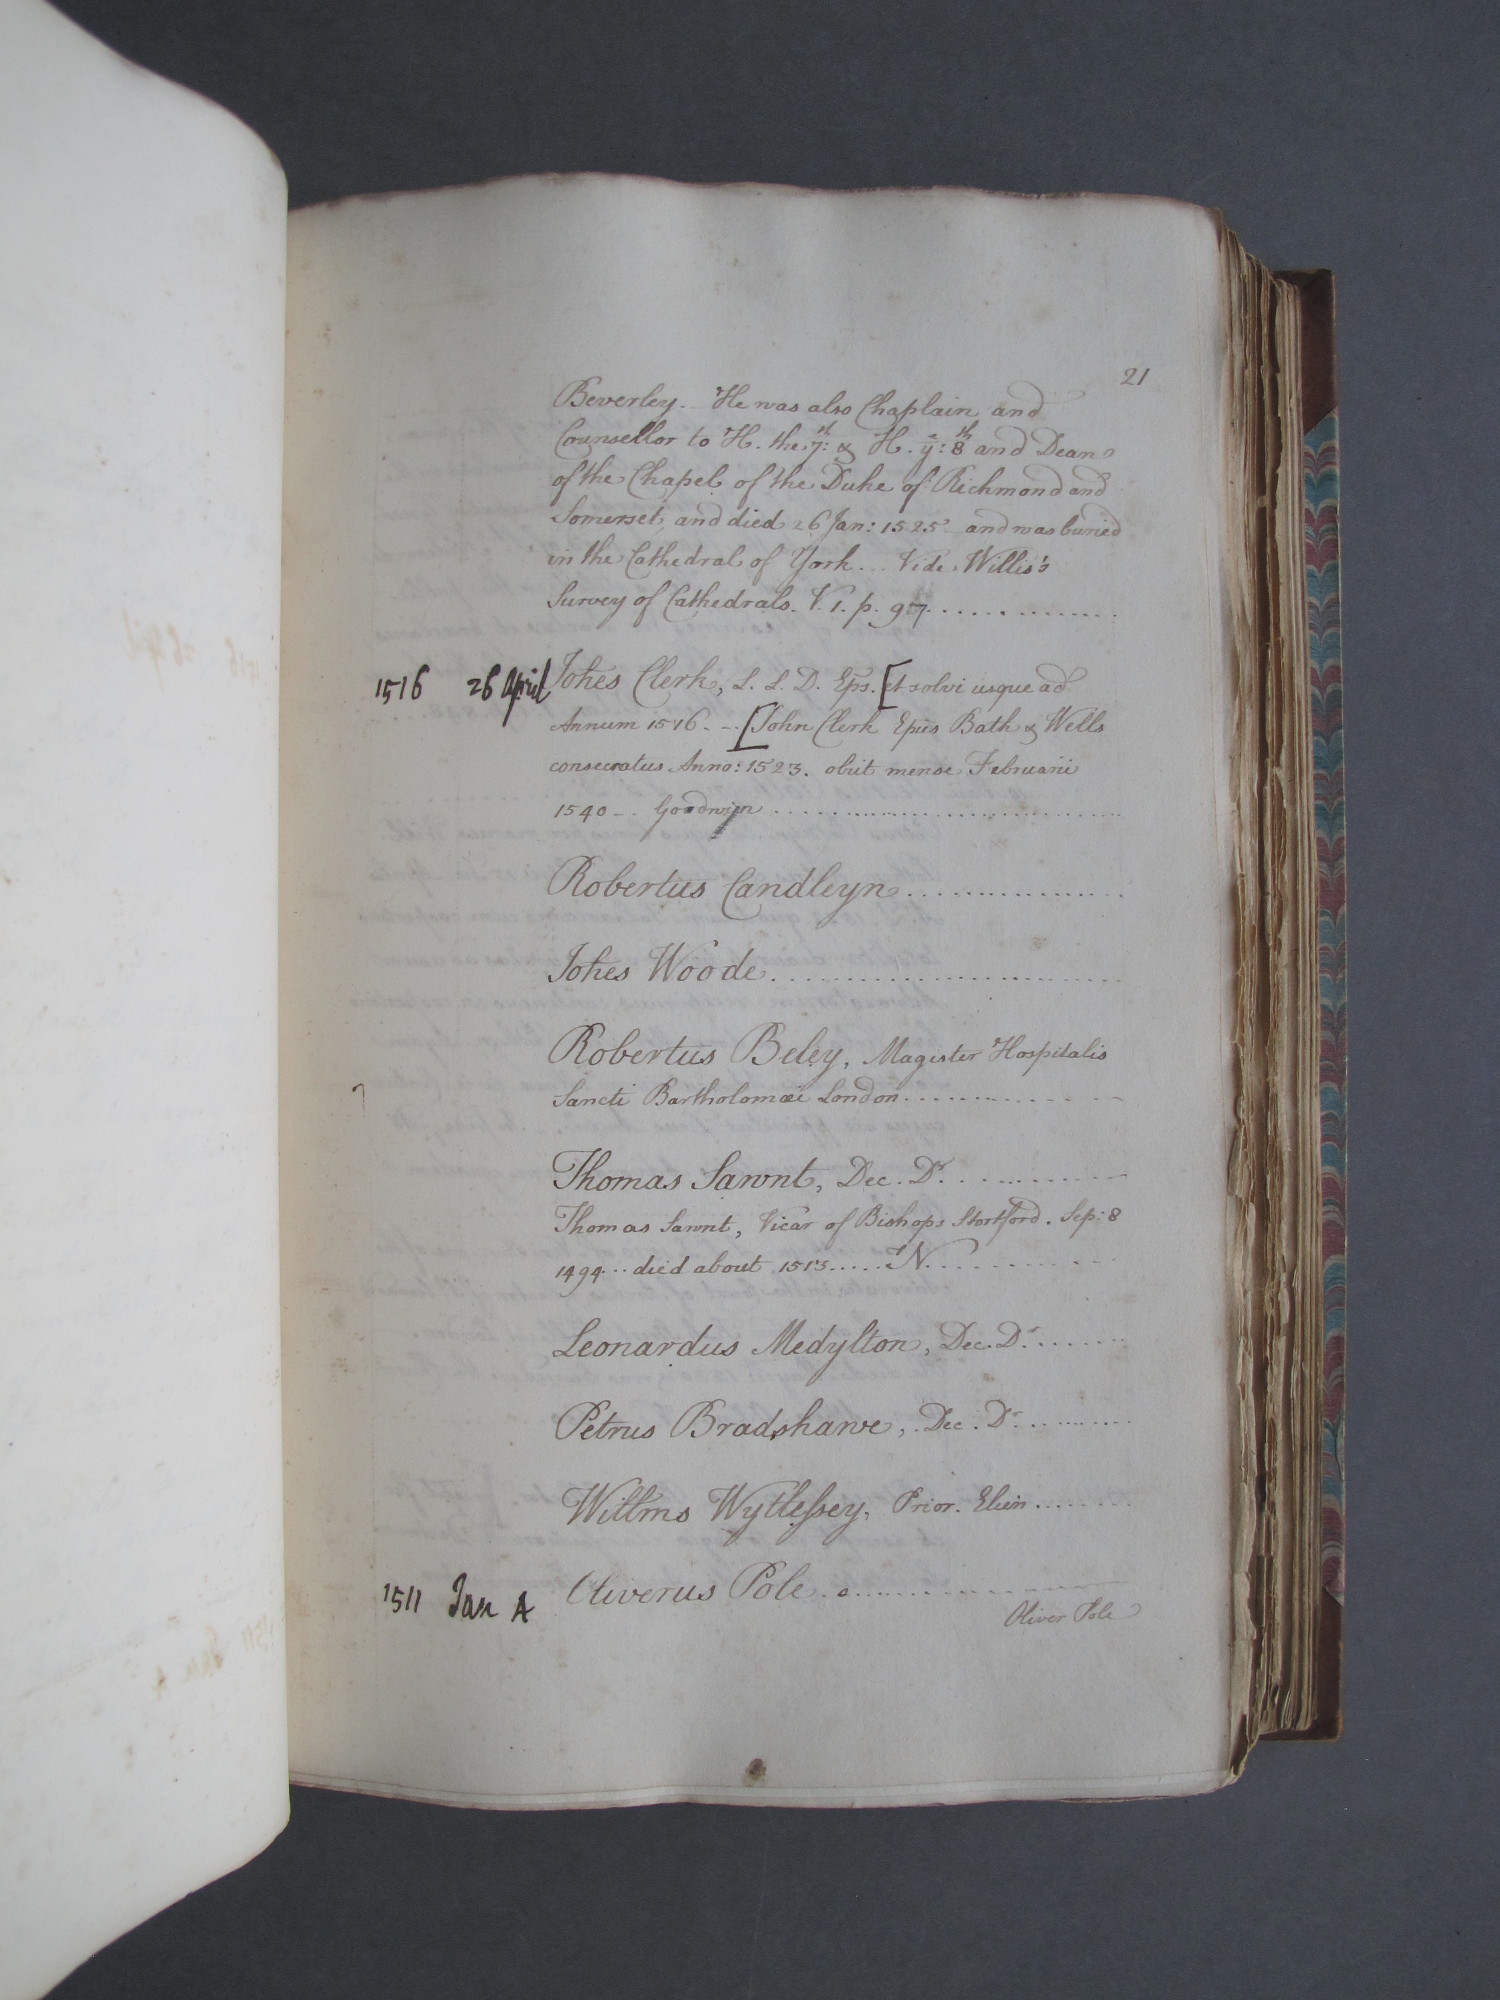 21
Beverley. He was also Chaplain and
Counsellor to H. the 7th: & H. ye: 8th and Dean
of the Chapel of the Duke of Richmond and
Somerset, and died 26 Jan: 1525 and was buried
in the Cathedral of York... Vide Willis's
Survey of Cathedrals. V. 1. p. 97.............
1516 26 April Johes Clerk, L. L. D. Eps. [et solvi usque ad
Annum 1516. -. [John Clerk Epūs Bath & Wells
consecratus Anno: 1523. obiit mense Februarii
1540 -. Goodwyn ..............................
Robertus Candleyn.................
Johes Woode...........................
Robertus Beley, Magister Hospitalis
Sancti Bartholomæi London................
Thomas Sawnt, Dec. Dr. ............
Thomas Sawnt, Vicar of Bishops Stortford. Sep: 8
1494.. died about 1515.....N.............
Leonardus Medylton, Dec. Dr.......
Petrus Bradshawe, Dec. Dr..........
Willms Wytlessey, Prior. Elien........
1511 Jan A Oliverus Pole...............
Oliver Pole